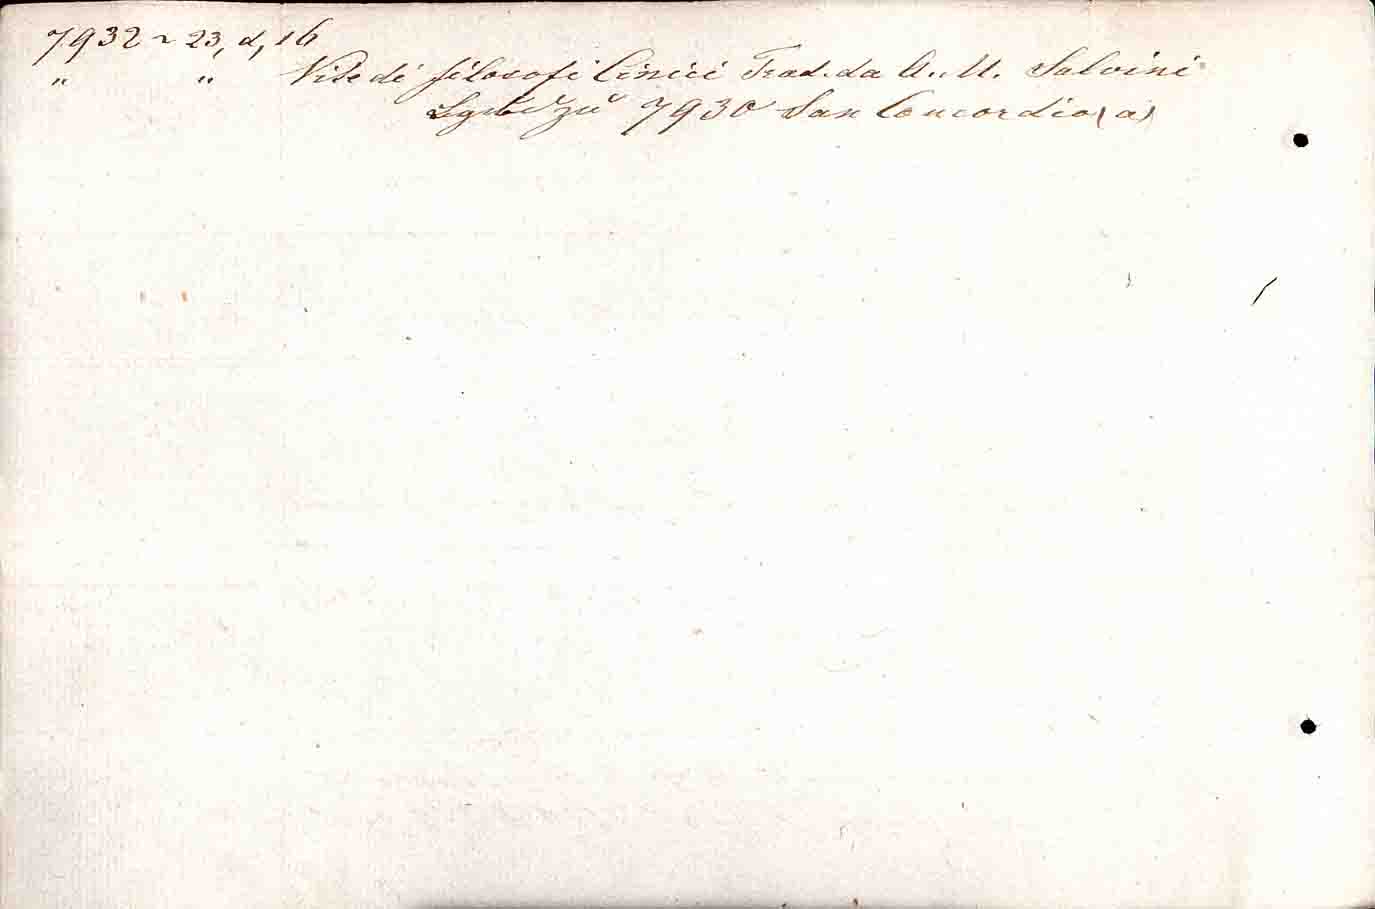 7932 ~ 23, d, 16
" " Vite di filosofi Cinici Trad. da A. M. Salvini
zu 7930 San Concordio (a)